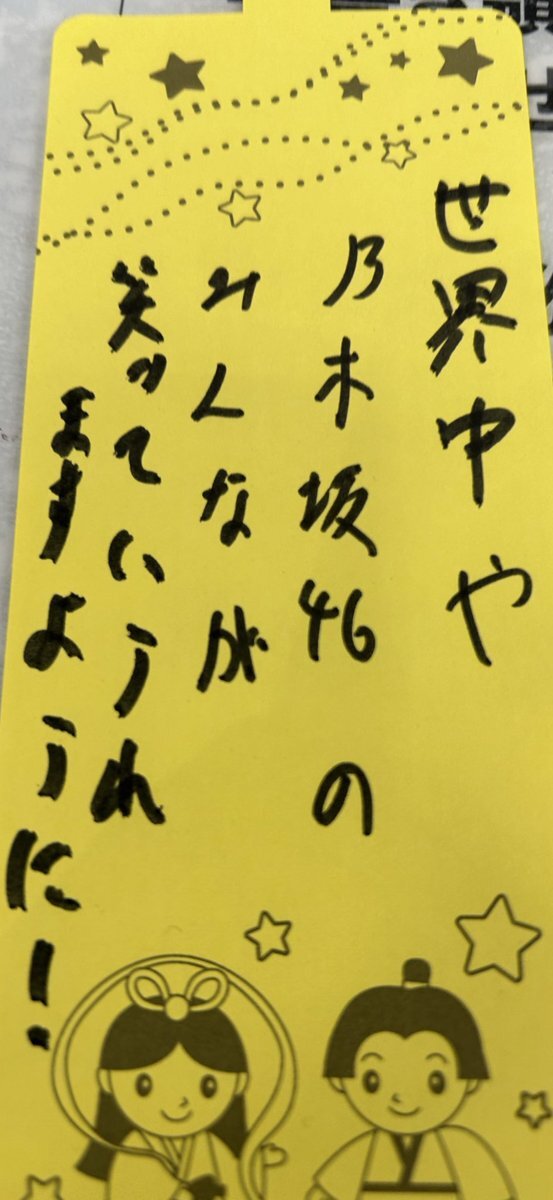 世界中や
乃木坂46の
みんなが
笑っていうれ
ますように!